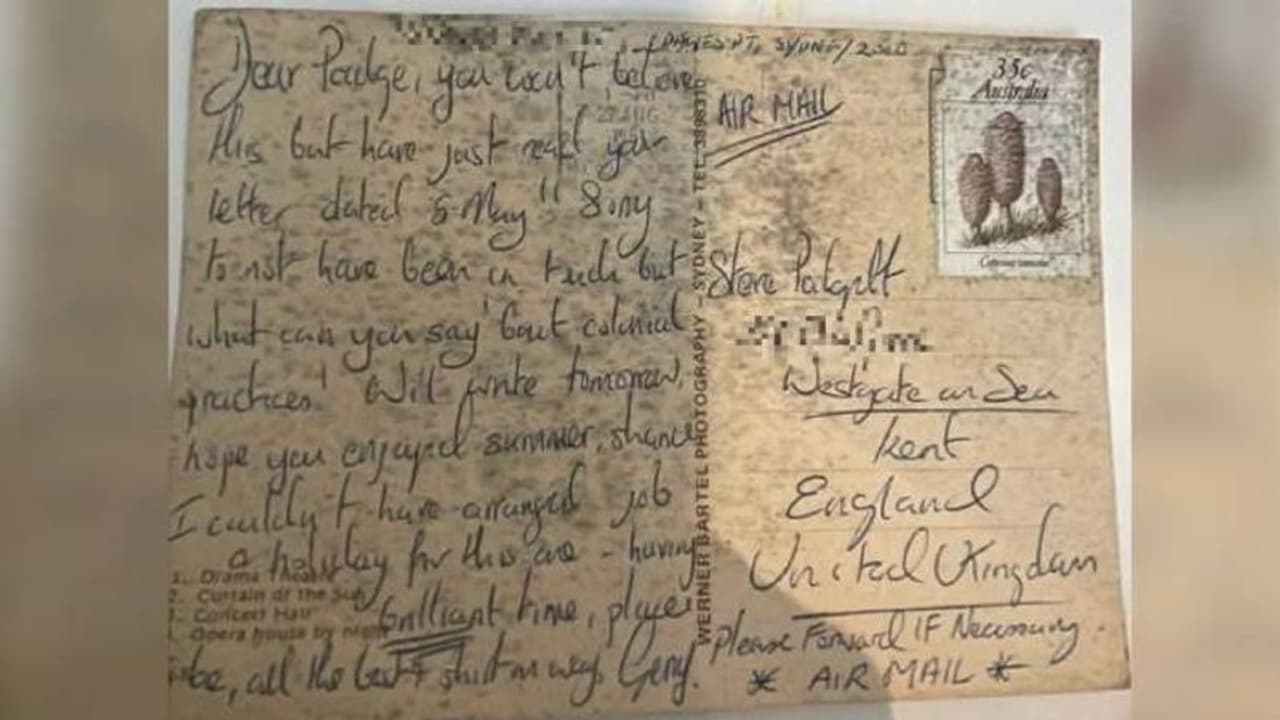 DAWES PT, SYDNEY 2000
Dear Padge, you won't believe
this but have just read your
letter dated "5 May" Sorry
to not have been in touch but
what can you say 'bout colonial
practices! Will write tomorrow,
hope you enjoyed summer, shame
I couldn't have arranged job
a holiday for this one - having
brilliant time, place
be, all the best + shirt on way, Gerry.
1. Drama Theatre
2. Curtain of the Sun
3. Concert Hall
4. Opera house by night
27 AUG
WERNER BARTEL PHOTOGRAPHY - SYDNEY - TEL.
AIR MAIL
35c
Australia
Steve Padgett
Westgate on Sea
Kent
England
United Kingdom
Please Forward IF Necessary.
* AIR MAIL *